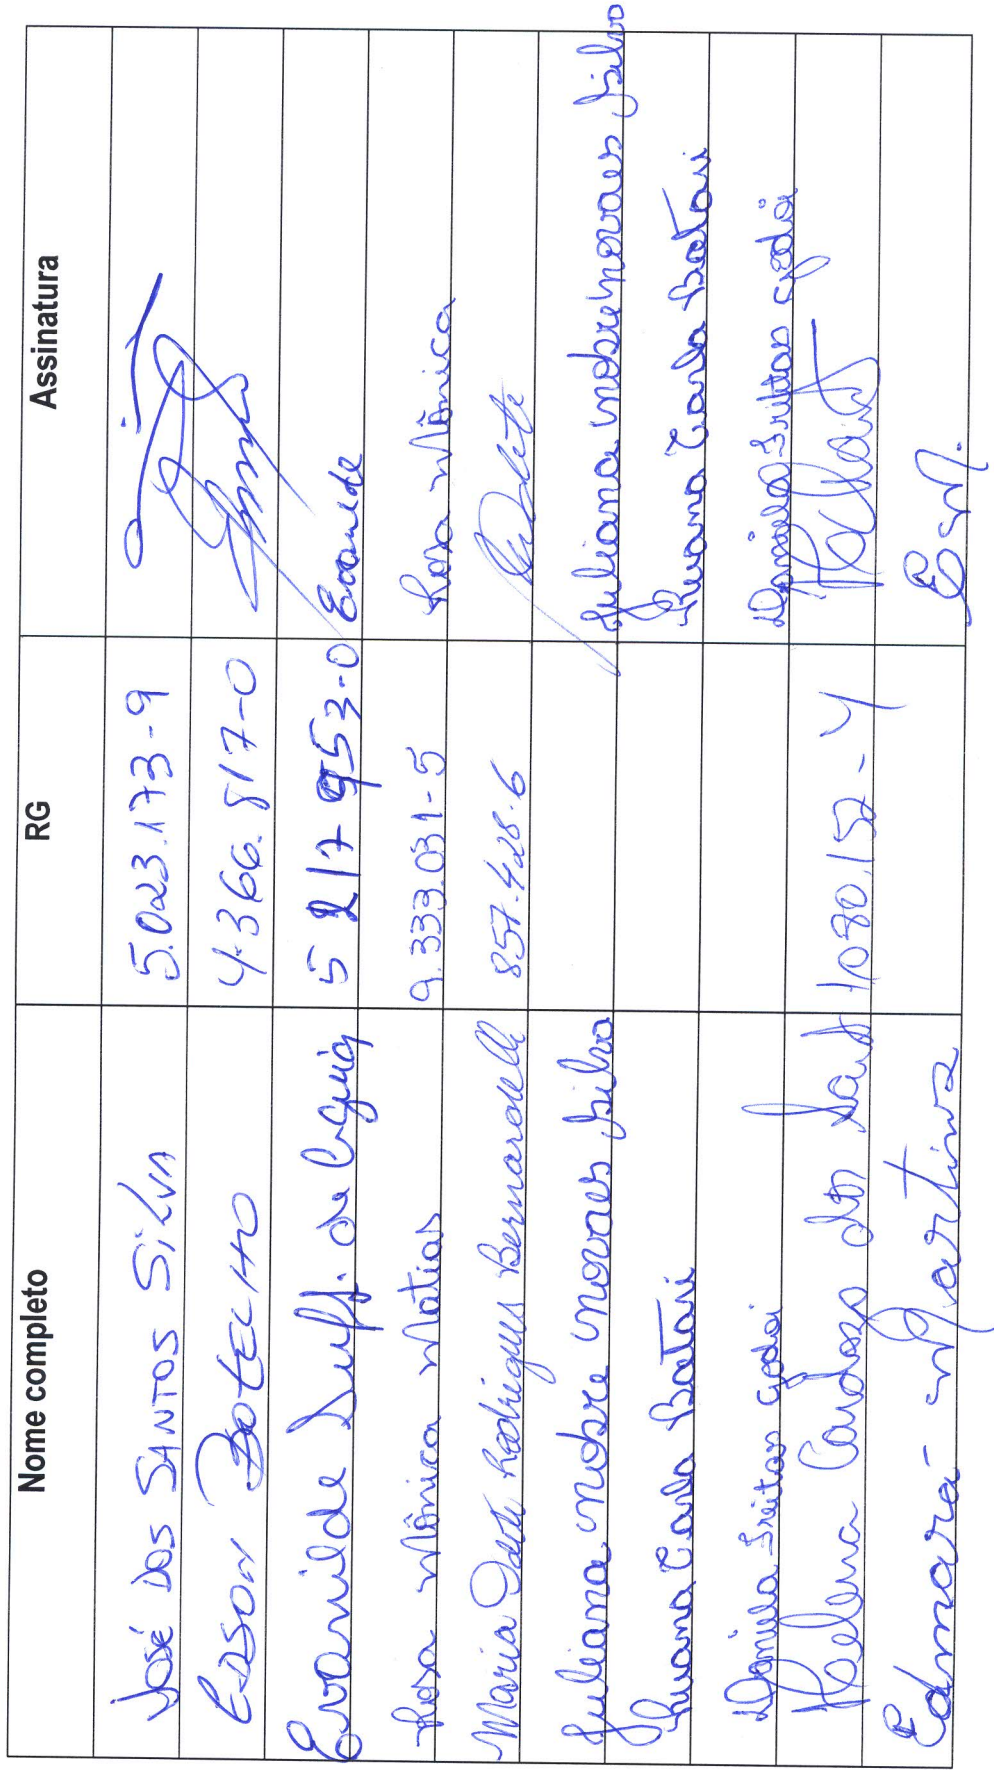 Nome completo RG Assinatura
José dos Santos Silva 5.023.173-9
Edson Botelho 4.366.817-0
Evanilde 5 217 953-0 Evanilde
Rosa Mônica Matias 9.333.031-5 Rosa Mônica
Maria Odete Rodrigues Bernardelli 857.428-6 Odete
Juliana Nobre Novaes Silva Juliana Nobre Novaes Silva
Luana Carla Batari Luana Carla Batari
Daniela Freitas Godoi Daniela Freitas Godoi
Helena Cardozo dos Sant 1080.152-4
Edmara Martins